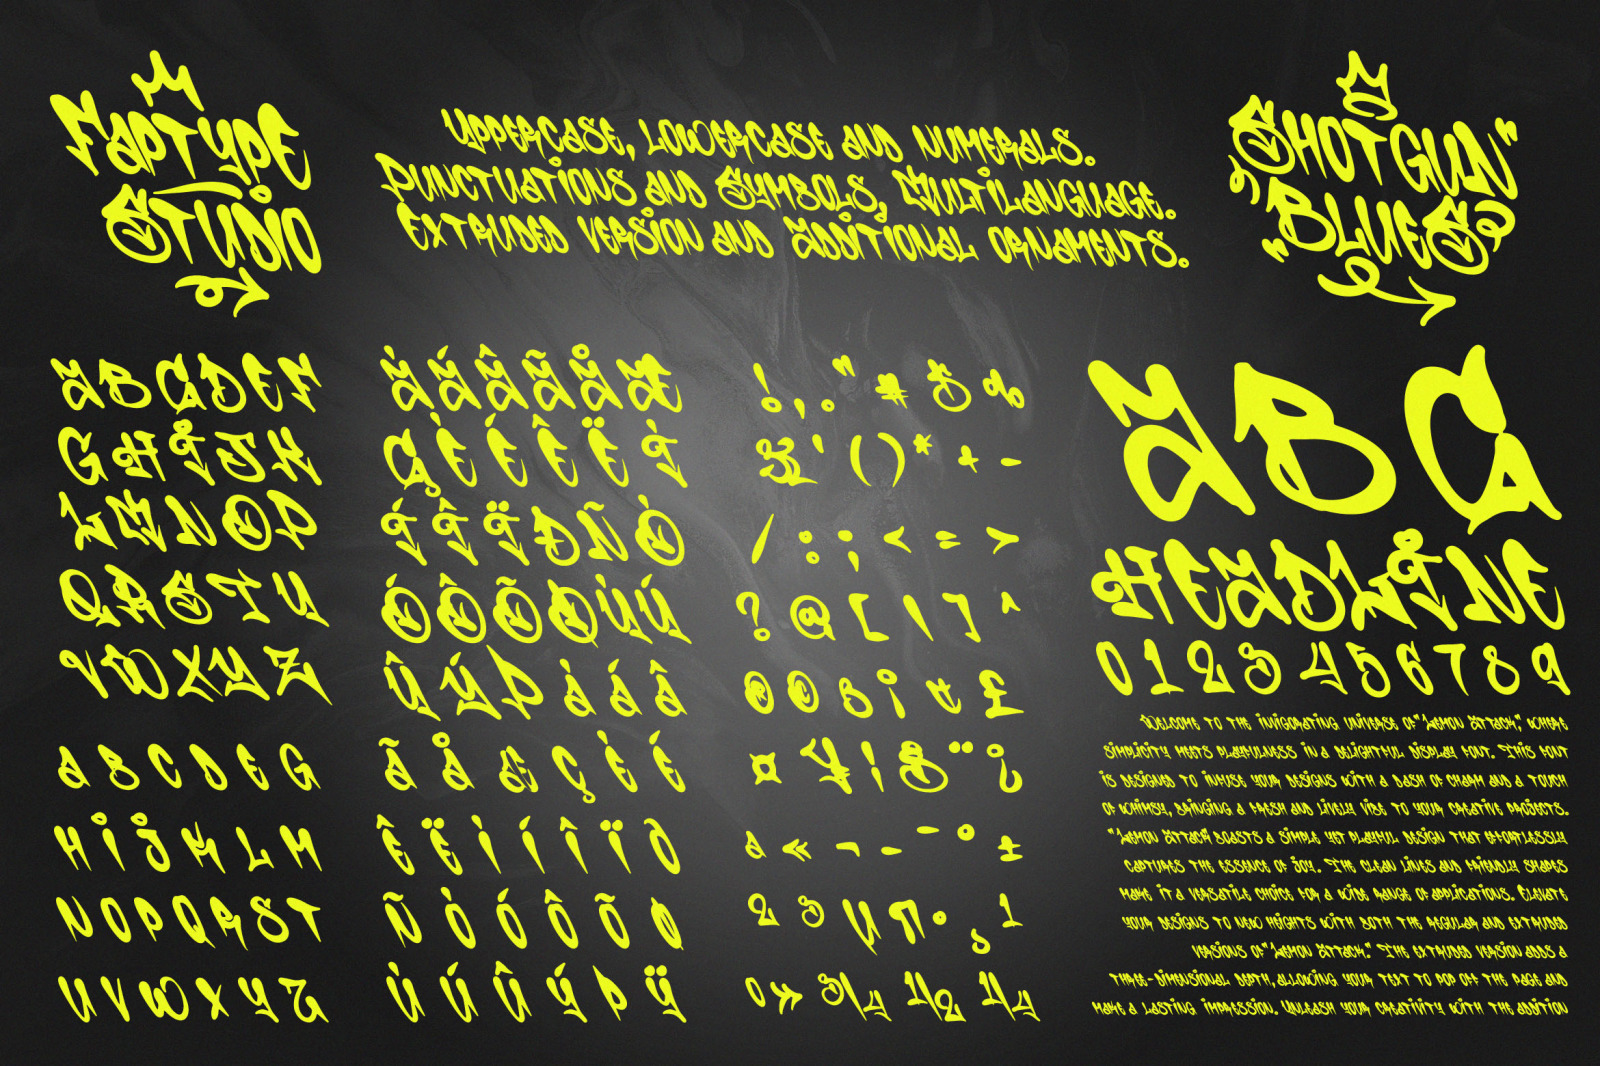 Faptype
Studio
Uppercase, lowercase and numerals.
Punctuations and Symbols, Multilanguage.
Extruded version and Additional ornaments.
Shotgun
Blues
A B C D E F
G H I J K
L M N O P
Q R S T U
V W X Y Z
a b c d e f g
h i j k l m
n o p q r s t
u v w x y z
À Á Â Ã Å Æ
Ç È É Ê Ë Ì
Í Î Ï Ð Ñ Ò
Ó Ô Õ Ø Ù Ú
Û Ý Þ à á â
ã å æ ç è é
ê ë ì í î ï ð
ñ ò ó ô õ ø
ù ú û ý þ ÿ
! , . " # $ %
& ' ( ) * + -
/ : ; < = >
? @ [ \ ] ^
® © ¡ ¢ £
¤ ¥ ¦ § ¨ ¿
ª « ¬ - ¯ ° ±
2 3 µ ¶ · ¸ 1
º » 3/4 1/2 1/4
A B C
HEADLINE
0 1 2 3 4 5 6 7 8 9
Welcome to the invigorating universe of "Lemon Attack," where
simplicity meets playfulness in a delightful display font. This font
is designed to infuse your designs with a dash of charm and a touch
of whimsy, bringing a fresh and lively vibe to your creative projects.
"Lemon Attack boasts a simple yet playful design that effortlessly
captures the essence of joy. The clean lines and friendly shapes
make it a versatile choice for a wide range of applications. Elevate
your designs to new heights with both the regular and extruded
versions of "Lemon Attack." The extruded version adds a
three-dimensional depth, allowing your text to pop off the page and
make a lasting impression. Unleash your creativity with the addition